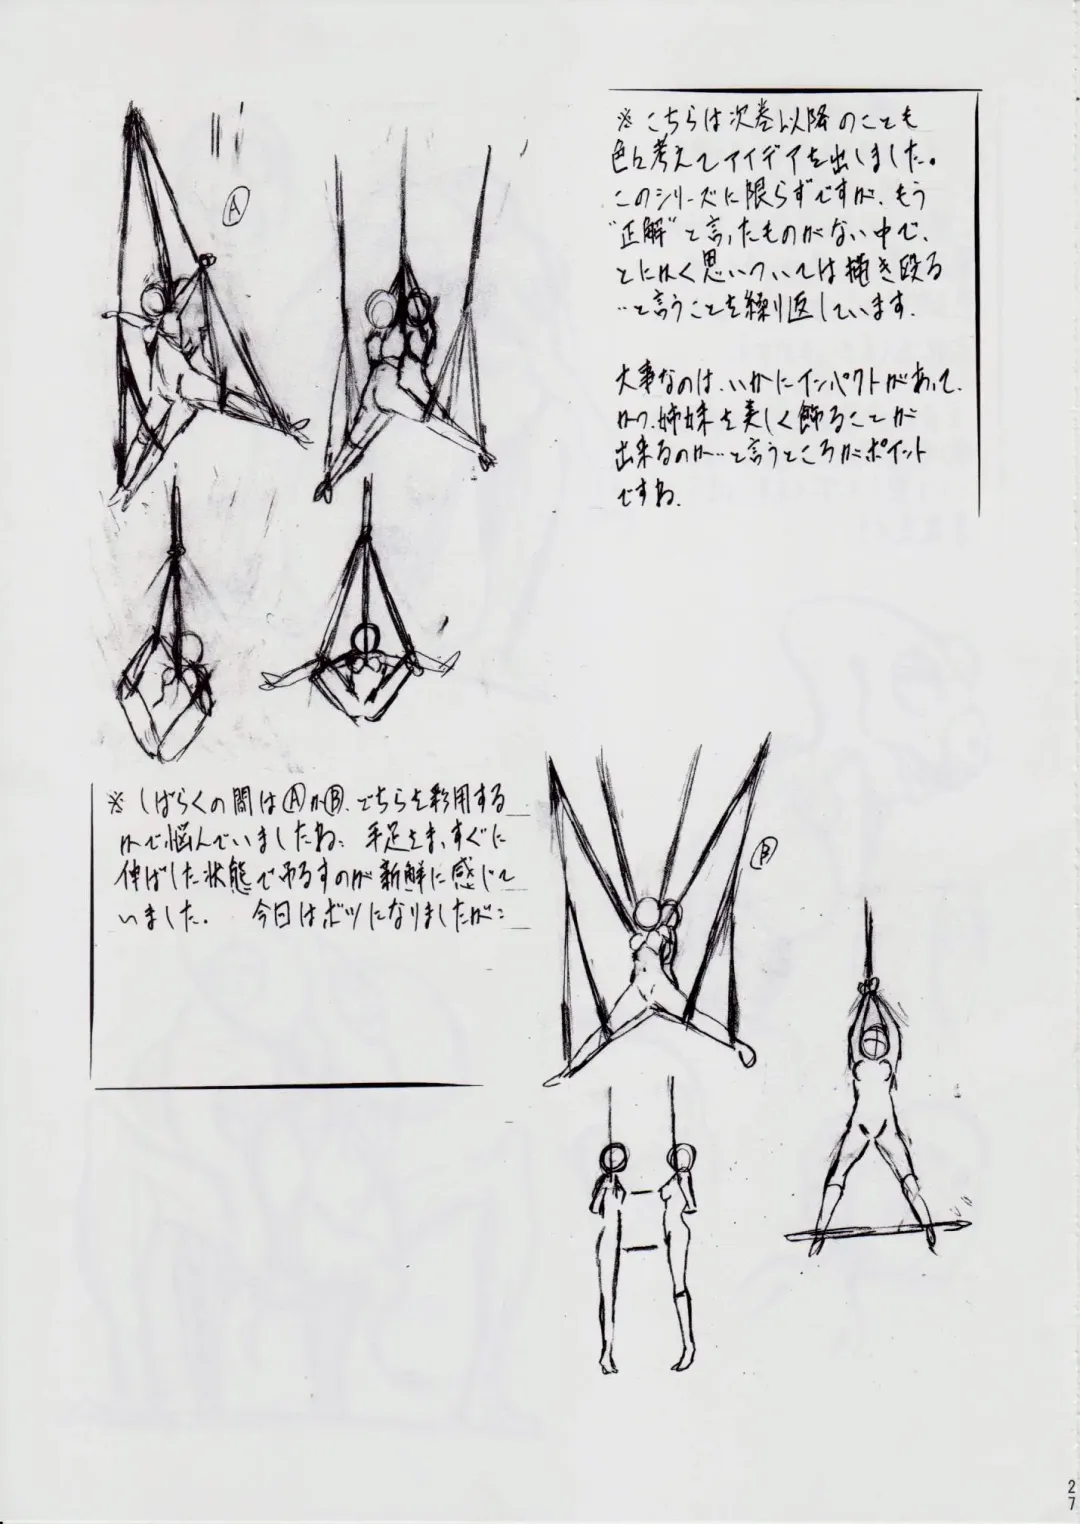 ※こちらは次巻以降のことも
色々考えてアイデアを出しました。
このシリーズに限らずですが、もう
"正解"と言ったものがない中で、
とにかく思いついては描き殴る
…と言うことを繰り返しています.
大事なのは、いかにインパクトがあって、
かつ、姉妹を美しく飾ることが
出来るのか…と言うところがポイント
ですね.
Ⓐ
※しばらくの間はⒶかⒷ、どちらを採用する
かで悩んでいましたね: 手足をまっすぐに
伸ばした状態で吊るすのが新鮮に感じて
いました. 今回はボツになりましたが:
Ⓑ
27